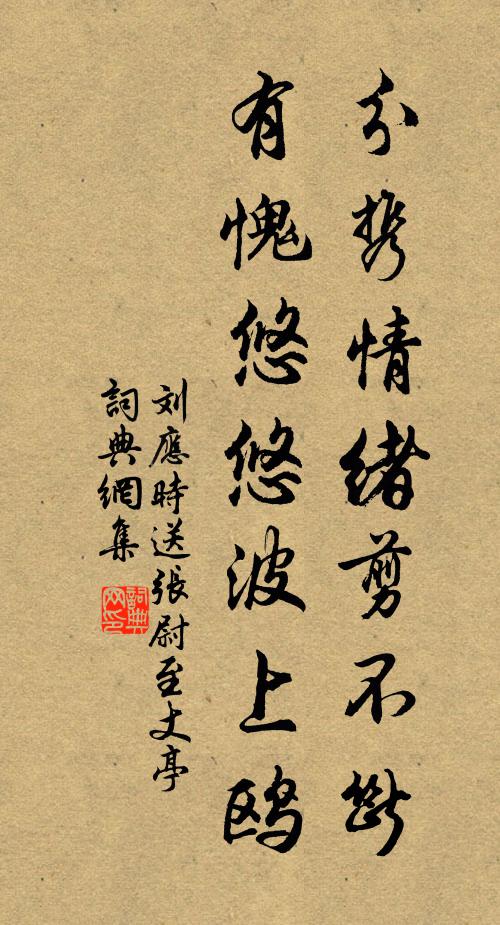 分携情緒剪不斷
有愧悠悠波上鸥
刘應時送張尉至丈亭
詞典網集
詞典
网印